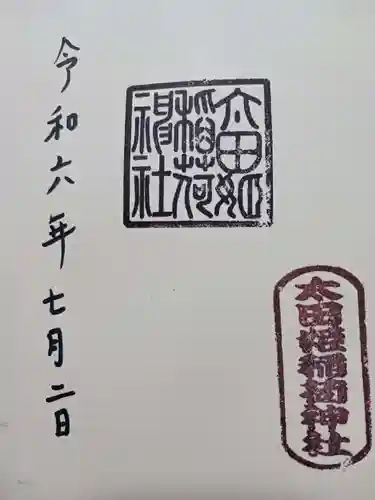 太田姫
稲荷
神社
太田姫稲荷神社
令和六年七月二日